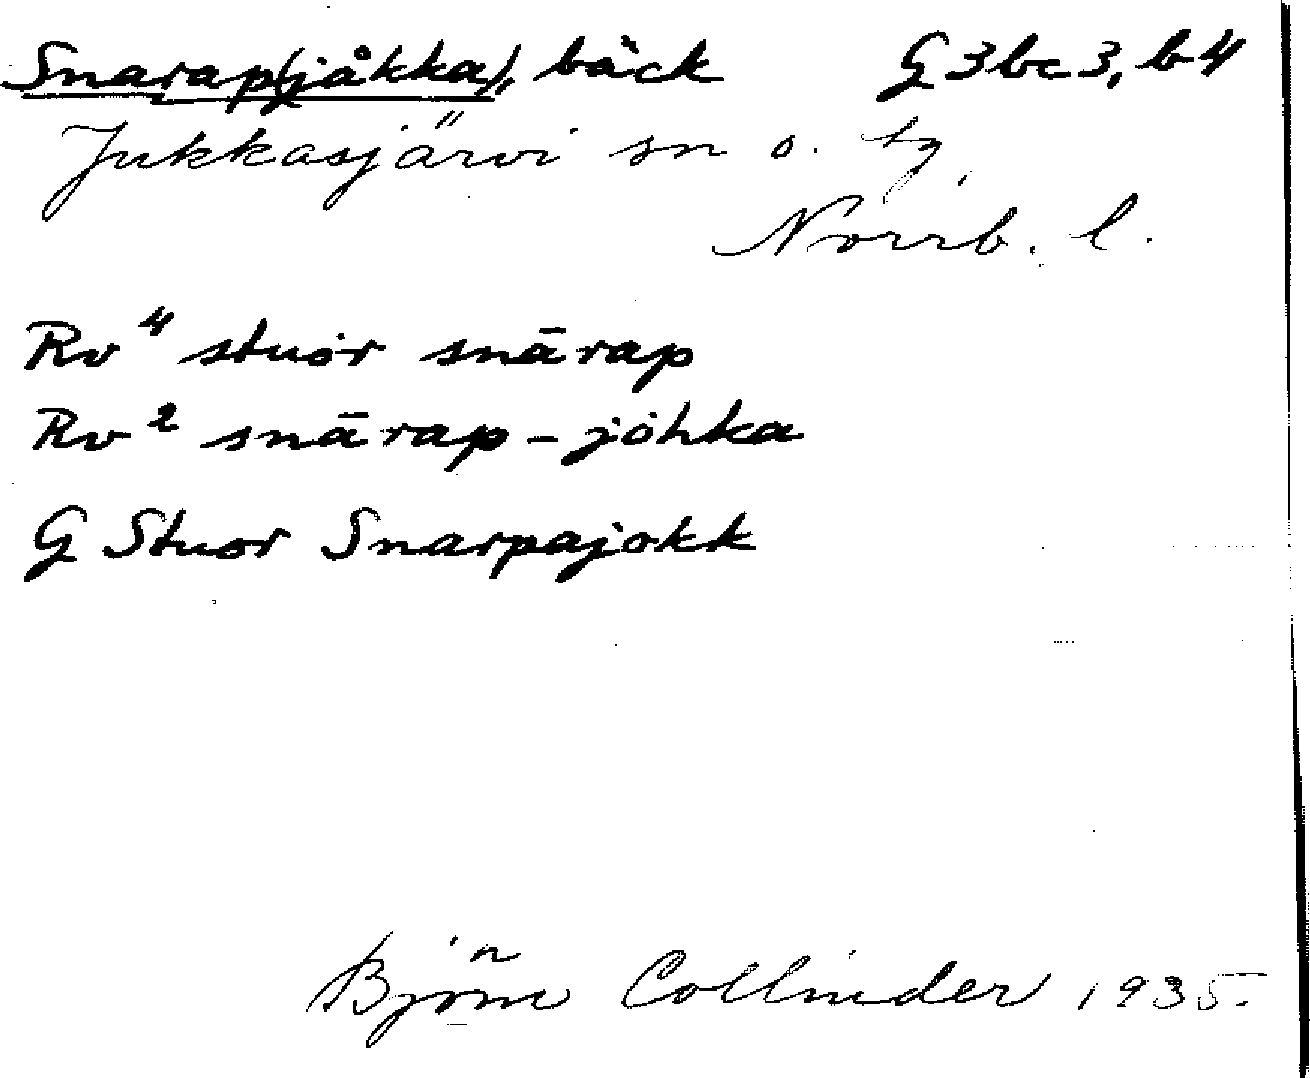 Snarap(jåkka), bäck G 3bc3, b4
Jukkasjärvi sn o. tg,
Norrb. l.
Rv⁴ stuȯr snārap
Rv² snārap-jȯhka
G Stuor Snarpajokk
Björn Collinder 1935.